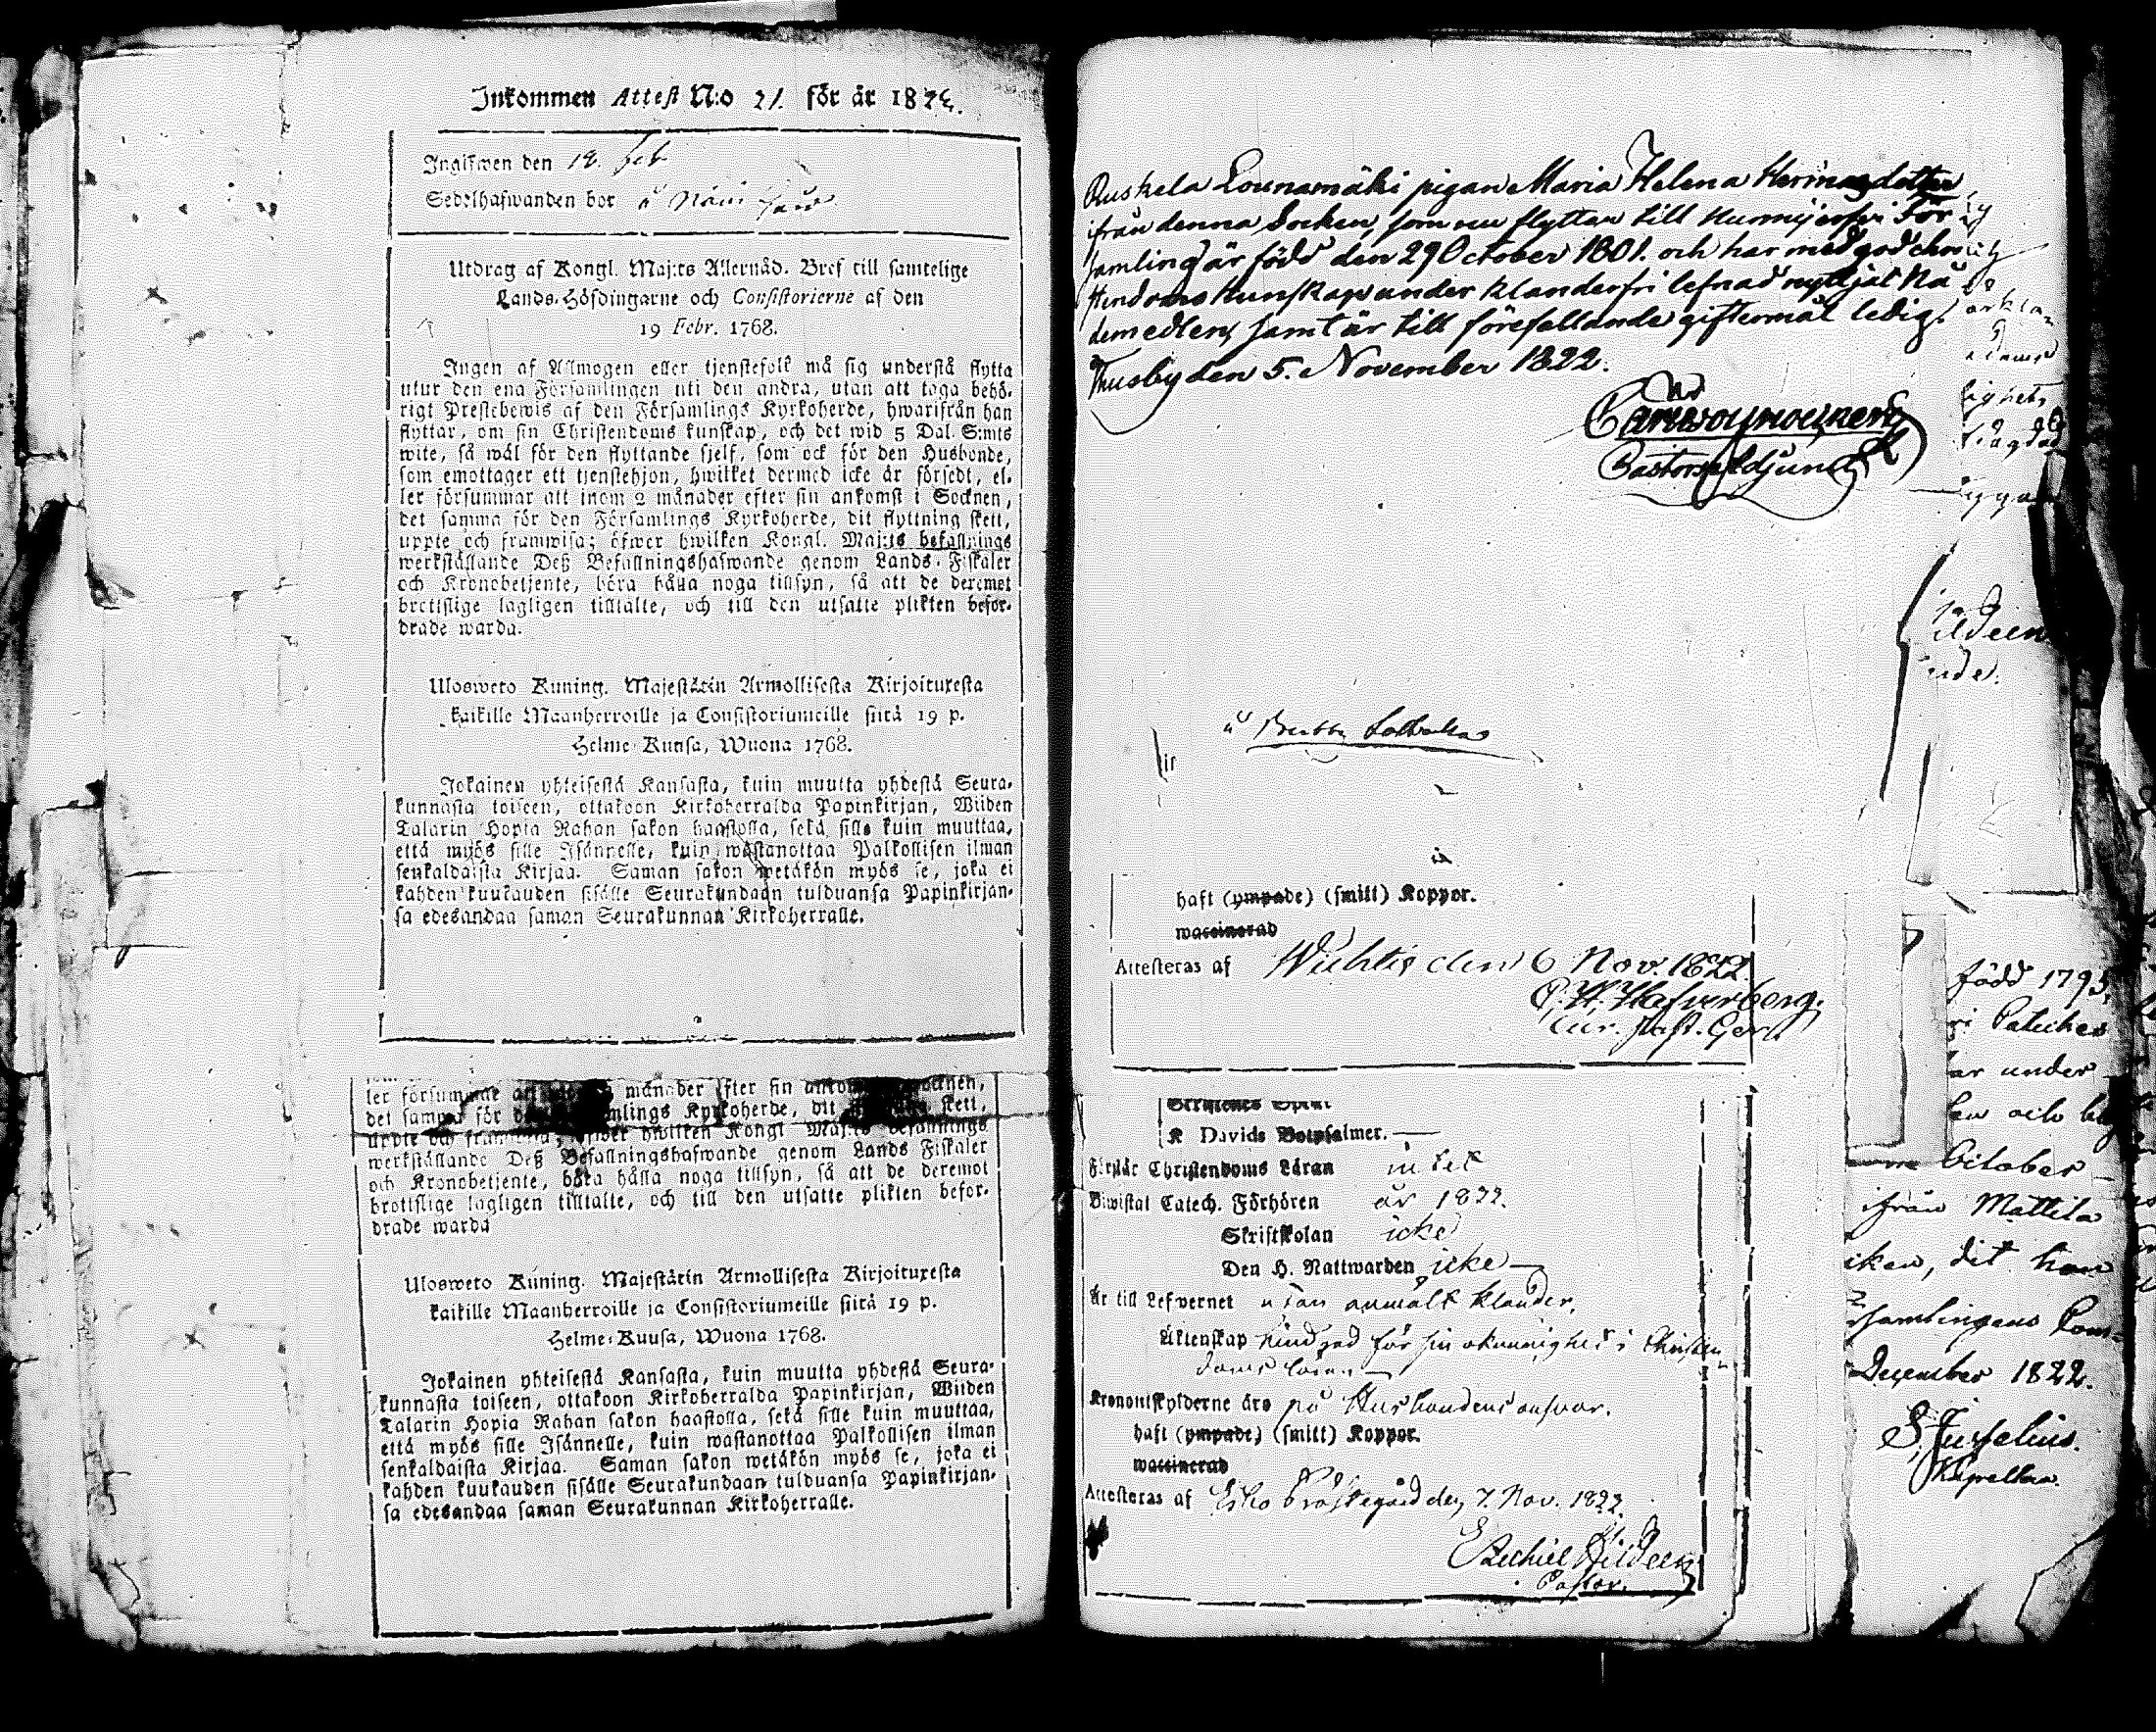 Inkommen Attest N:o 21. för år 182
Ingifwen den 18. Feb
Sedelhafwanden bor
Utdrag af Kongl. Maj:ts Allernåd. Bref till samtelige
Lands-Höfdingarne och Consistorierne af den
19 Febr. 1768.
Ingen af Allmogen eller tjenstefolk må sig understå flytta
utur den ena Församlingen uti den andra, utan att taga behö-
rigt Prestebewis af den Församlings Kyrkoherde, hwarifrån han
flyttar, om sin Christendoms kunskap, och det wid 5 Dal. S:mts
wite, så wäl för den flyttande sjelf, som ock för den Husbonde,
som emottager ett tjenstehjon, hwilket dermed icke är försedt, el-
ler försummar att inom 2 månader efter sin ankomst i Socknen,
det samma för den Församlings Kyrkoherde, dit flyttning skett,
uppte och framwisa; öfwer hwilken Kongl. Maj:ts befallnings
werkställande Deß Befallningshafwande genom Lands-Fiskaler
och Kronobetjente, böra hålla noga tillsyn, så att de deremot
brottslige lagligen tilltalte, och till den utsatte plikten befor-
drade warda.
Ulosweto Kuning. Majestätin Armollisesta Kirjoituxesta
kaikille Maanherroille ja Consistoriumeille siitä 19 p.
Helme-Kuusa, Wuona 1768.
Jokainen yhteisestä Kansasta, kuin muutta yhdestä Seura-
kunnasta toiseen, ottakoon Kirkoherralda Papinkirjan, Wiiden
Talarin Hopia Rahan sakon haastolla, sekä sille kuin muuttaa,
että myös sille Isännelle, kuin wastanottaa Palkollisen ilman
senkaldaista Kirjaa. Saman sakon wetäkön myös se, joka ei
kahden kuukauden sisälle Seurakundaan tulduansa Papinkirjan-
sa edesandaa saman Seurakunnan Kirkoherralle.
ler försummar månader efter sin
det samma för mlings Kyrkoherde, dit skett,
uppte och framwisa; öfwer hwilken Kongl Maj:ts befallnings
werkställande Deß Befallningshafwande genom Lands Fiskaler
och Kronobetjente, böra hålla noga tillsyn, så att de deremot
brottslige lagligen tilltalte, och till den utsatte plikten befor-
drade warda
Ulosweto Kuning. Majestätin Armollisesta Kirjoituxesta
kaikille Maanherroille ja Consistoriumeille siitä 19 p.
Helme-Kuusa, Wuona 1768.
Jokainen yhteisestä Kansasta, kuin muuttaa yhdestä Seura-
kunnasta toiseen, ottakoon Kirkoherralda Papinkirjan, Wiiden
Talarin Hopia Rahan sakon haastolla, sekä sille kuin muuttaa,
että myös sille Isännelle, kuin wastanottaa Palkollisen ilman
senkaldaista Kirjaa. Saman sakon wetäkön myös se, joka ei
kahden kuukauden sisälle Seurakundaan tulduansa Papinkirjan-
sa edesandaa saman Seurakunnan Kirkoherralle.
Ruskela Lounamäki pigan Maria Helena Hermansdotter
ifrån denna Socken, som nu flyttar till Nurmijervi För
samling är född den 29 October 1801. och har med god chri
stendoms kunskap under klanderfri lefnad nyttjat Nå
demedlen, samt är till förefallande giftermål ledig.
Thusby den 5. November 1822.
Pastors Adjunct
haft (ympade) (smitt) Koppor.
waccinerad
Attesteras af Wichtis den 6 Nov. 1822.
K Davids Botpsalmer.
Förstår Christendoms Läran intet
Biwistat Catech. Förhören år 1822.
Skriftskolan icke
Den H. Nattwarden icke
Är till Lefwernet utan anmält klander,
Äktenskap hindrad för sin okunnighet i Christen
doms läran
Kronoutskylderne äro på Husbondens answar.
haft (ympade) (smitt) Koppor.
waccinerad
Attesteras af Esbo Prästegård den 7. Nov. 1822.
Ezechiel Hildeen
Pastor.
född 1793,
är under
October
ifrån Mattila
iken, dit han
församlingens
December 1822.